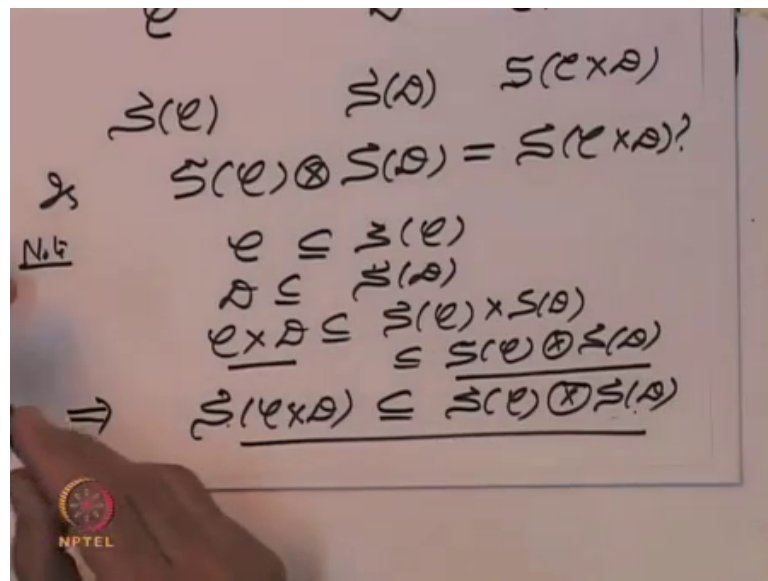 S(C) S(D) S(C×D)
Is S(C)⊗S(D) = S(C×D)?
Note C ⊆ S(C)
D ⊆ S(D)
C×D ⊆ S(C)×S(D)
⊆ S(C)⊗S(D)
⇒ S(C×D) ⊆ S(C)⊗S(D)
NPTEL